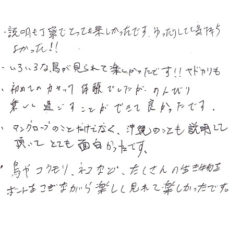 ・説明も丁寧でとっても楽しかったです。ゆったりして気持ち
よかった!!
・いろいろな鳥が見られて楽しかったです!!ヤドカリも
・初めてのカヤック体験でしたが、のんびり
楽しく過ごすことができて良かったです。
・マングローブのことだけでなく、沖縄のことも説明して
頂いてとても面白かったです。
・鳥やコウモリ、ネコなど、たくさんの生き物を
ボートをこぎながら楽しく見れて楽しかったです。